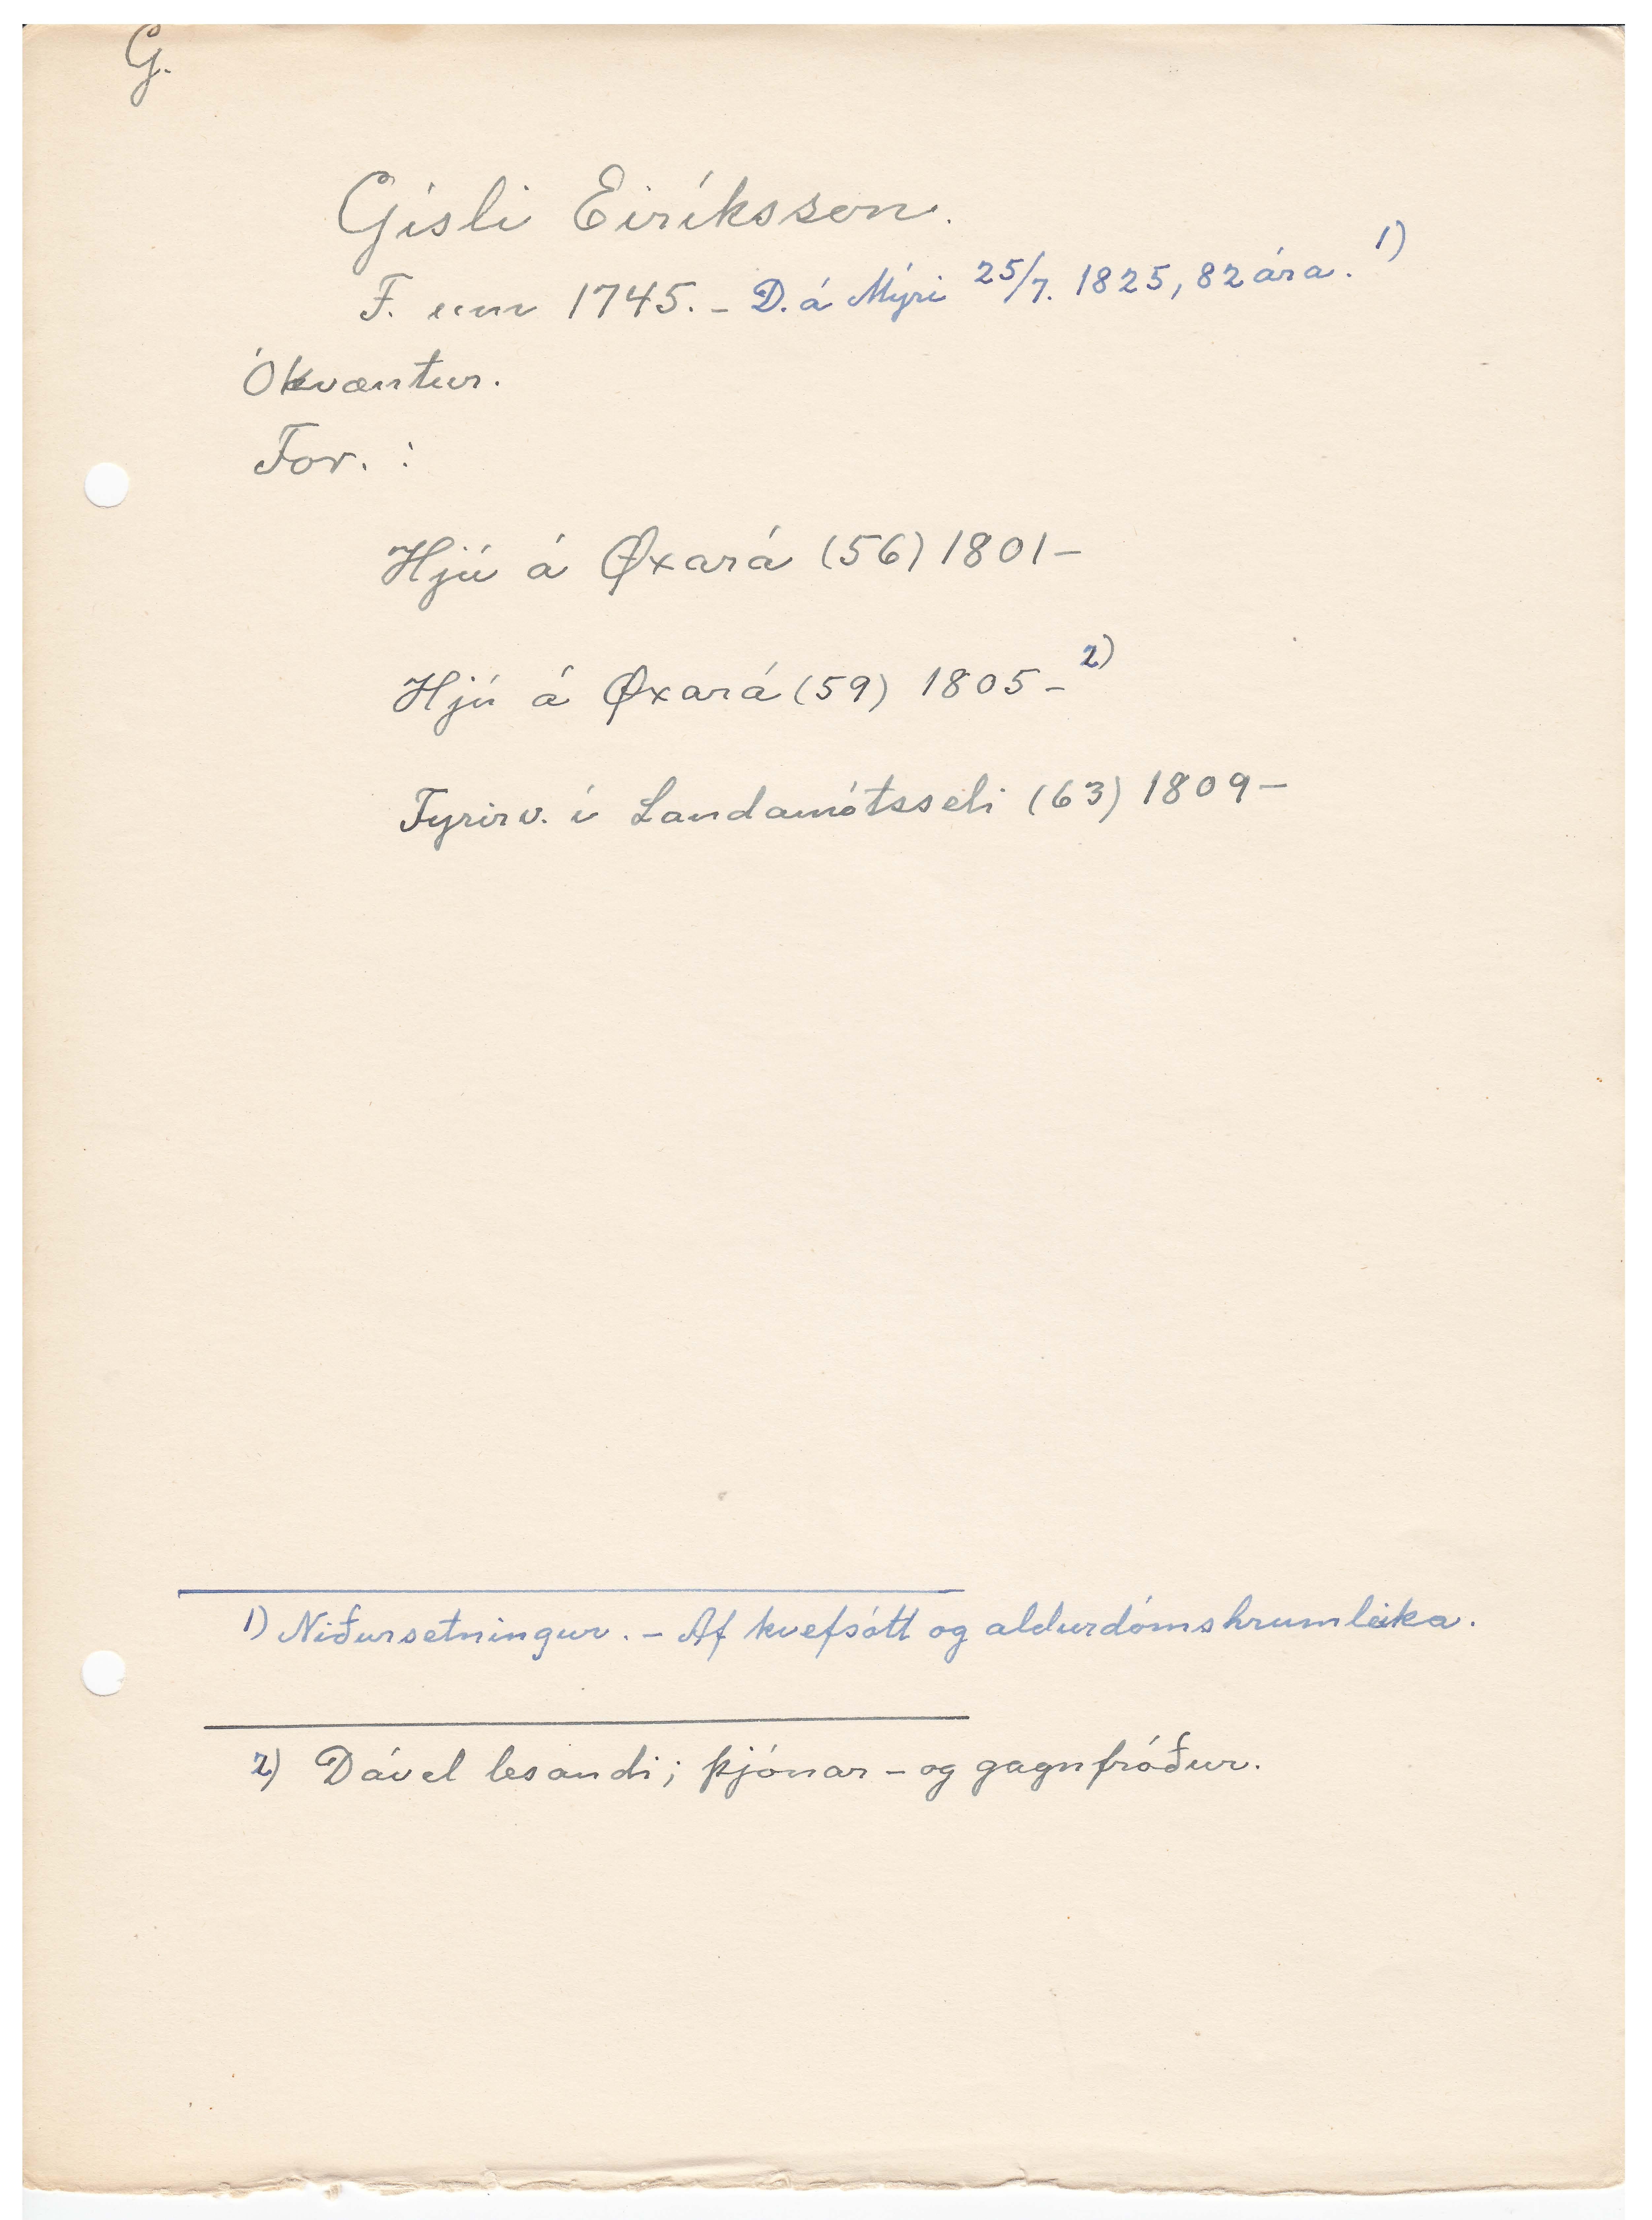 G.
Gísli Eiríksson.
F. um 1745. - D. á Mýri 25/7. 1825, 82 ára. 1)
Ókvæntur.
For. :
Hjú á Øxará (56) 1801-
Hjú á Øxará (59) 1805- 2)
Fyrirv. í Landamótsseli (63) 1809-
1) Niðursetningur. - Af kvefsótt og aldurdómshrumleika.
2) Dável lesandi; þjónar- og gagnfróður.